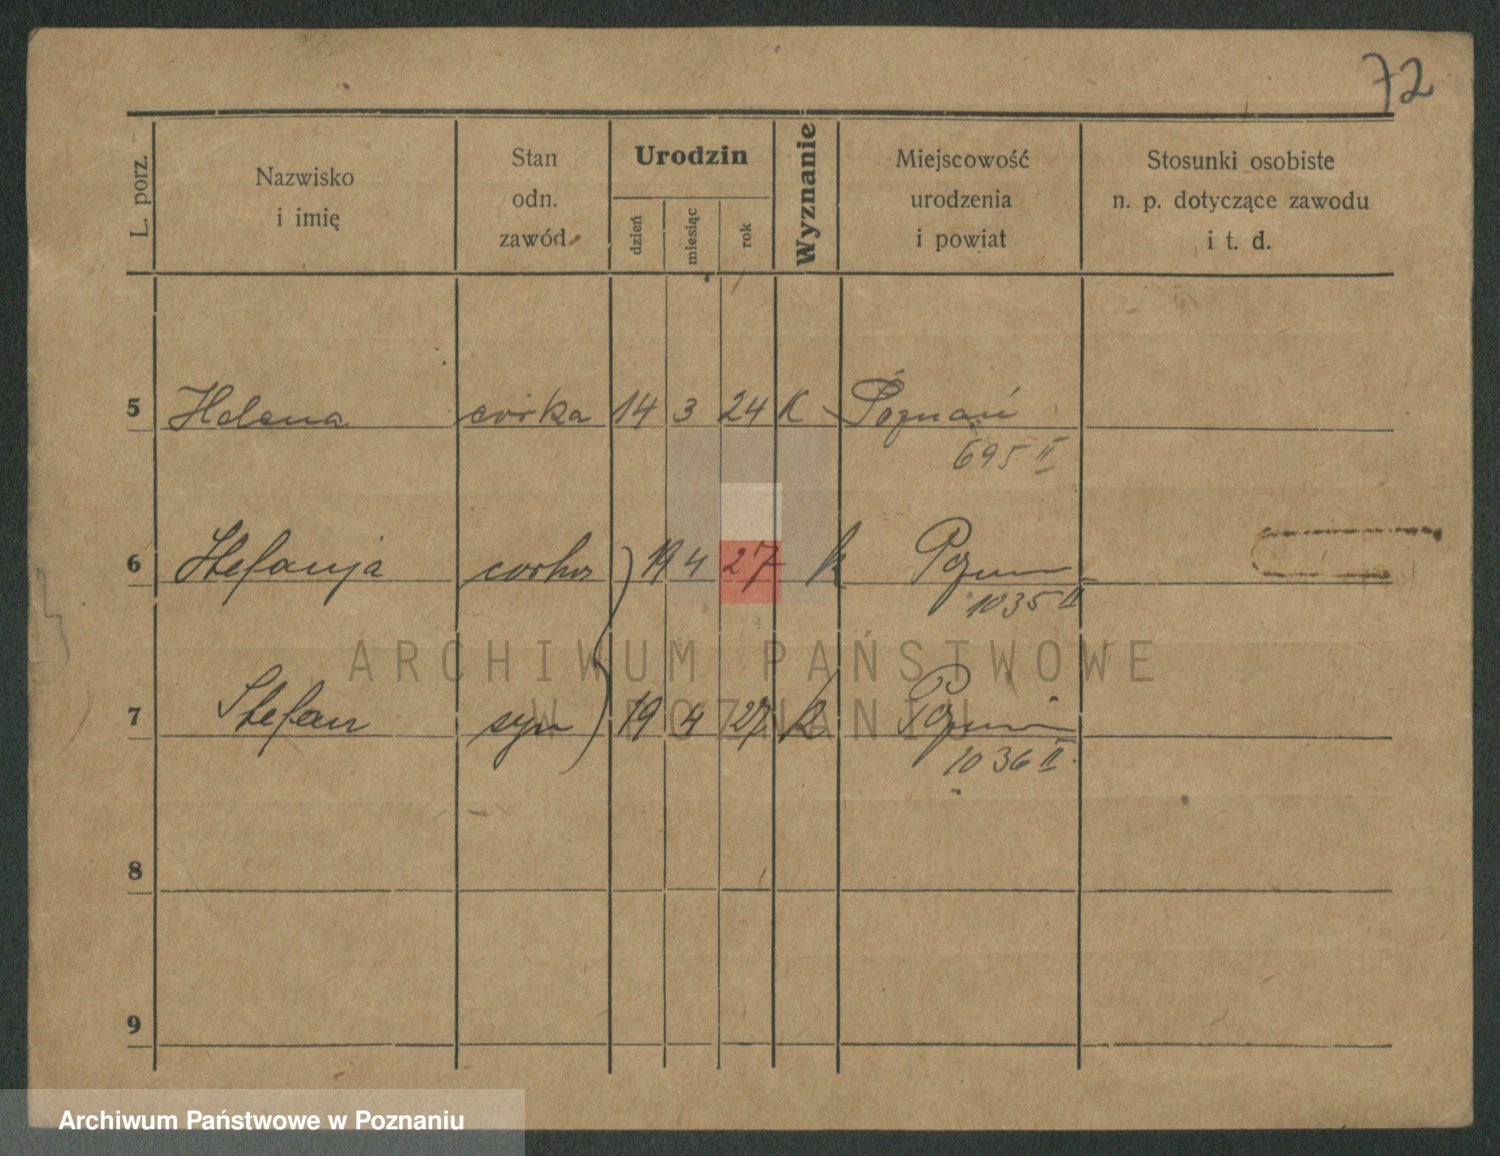 72
L. porz.
Nazwisko
i imię
Stan
odn.
zawód
Urodzin
dzień
miesiąc
rok
Wyznanie
Miejscowość
urodzenia
i powiat
Stosunki osobiste
n. p. dotyczące zawodu
i t. d.
5 Helena córka 14 3 24 K Poznań
695 II
6 Stefanja córka 19 4 27 k Pozn
1035 II
7 Stefan syn 19 4 27 k Pozn
1036 II
8
9
ARCHIWUM PAŃSTWOWE
W POZNANIU
Archiwum Państwowe w Poznaniu